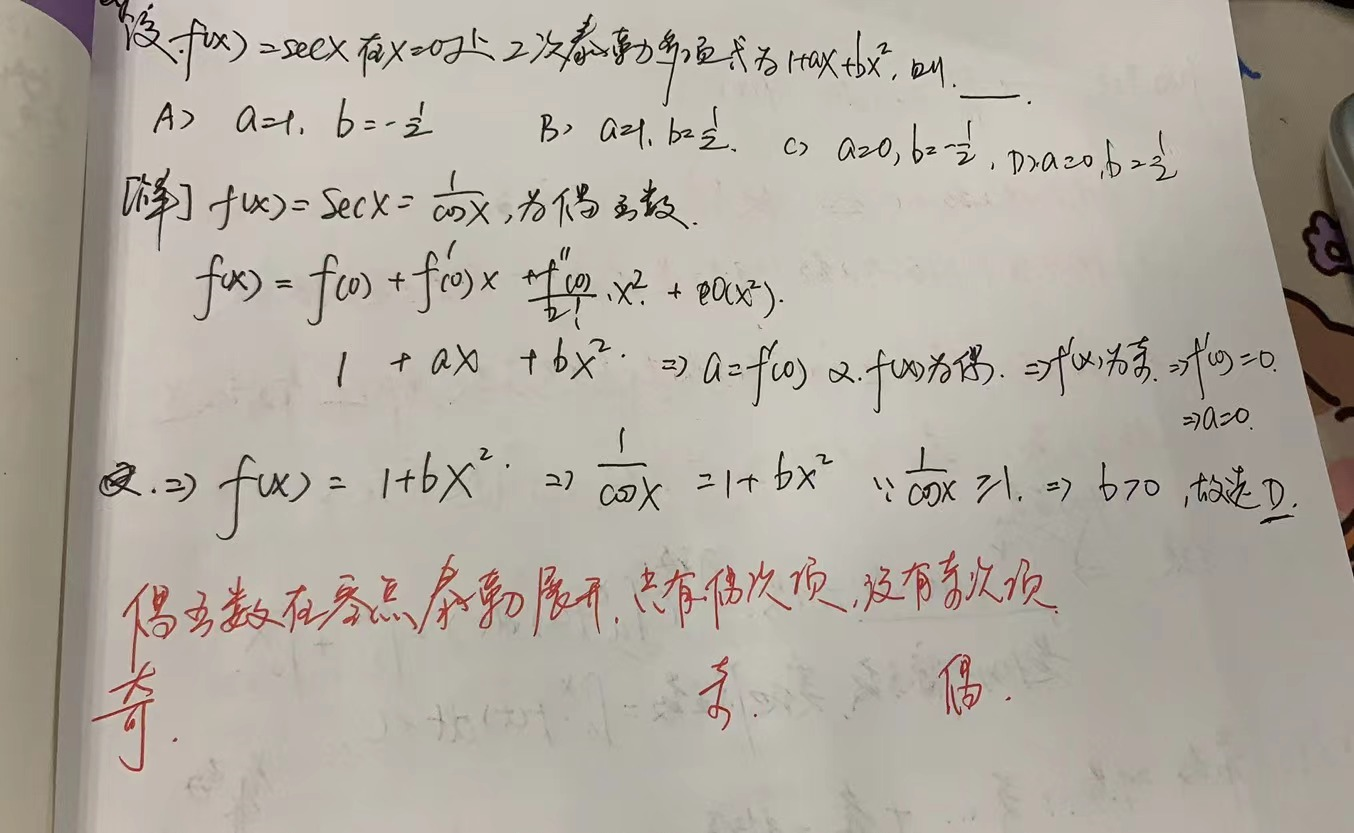 设.f(x)=secx在x=0处2次泰勒多项式为1+ax+bx²,则.____.
A> a=1. b=-1/2 B> a=1. b=1/2. C> a=0, b=-1/2. D>a=0,b=1/2
[解] f(x)=secx=1/cosx,为偶函数.
f(x)=f(0)+f'(0)x+f''(0)/2!·x²+o(x²).
1+ax+bx². ⇒a=f'(0) 又.f(x)为偶.⇒f'(x)为奇.⇒f'(0)=0.
⇒a=0.
⇒f(x)=1+bx². ⇒1/cosx=1+bx² ∵1/cosx≥1. ⇒b>0,故选D.
偶函数在零点泰勒展开,只有偶次项,没有奇次项.
奇. 奇. 偶.